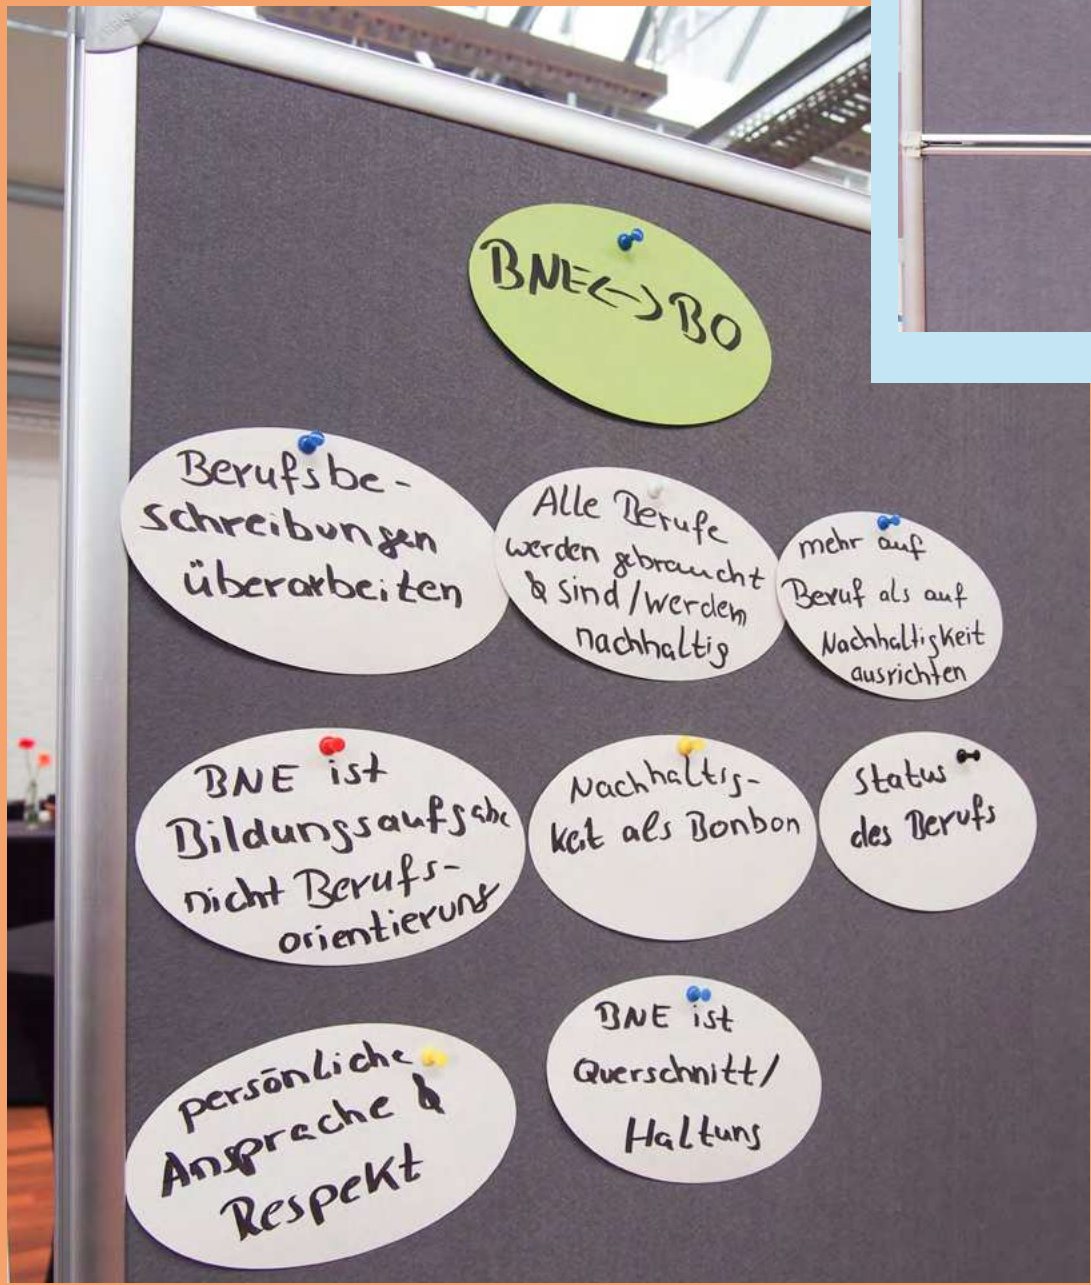 BNE<->BO
Berufsbe-
schreibungen
überarbeiten
Alle Berufe
werden gebraucht
& sind/werden
nachhaltig
mehr auf
Beruf als auf
Nachhaltigkeit
ausrichten
BNE ist
Bildungsaufgabe
nicht Berufs-
orientierung
Nachhaltig-
keit als Bonbon
Status
des Berufs
persönliche
Ansprache &
Respekt
BNE ist
Querschnitt/
Haltung